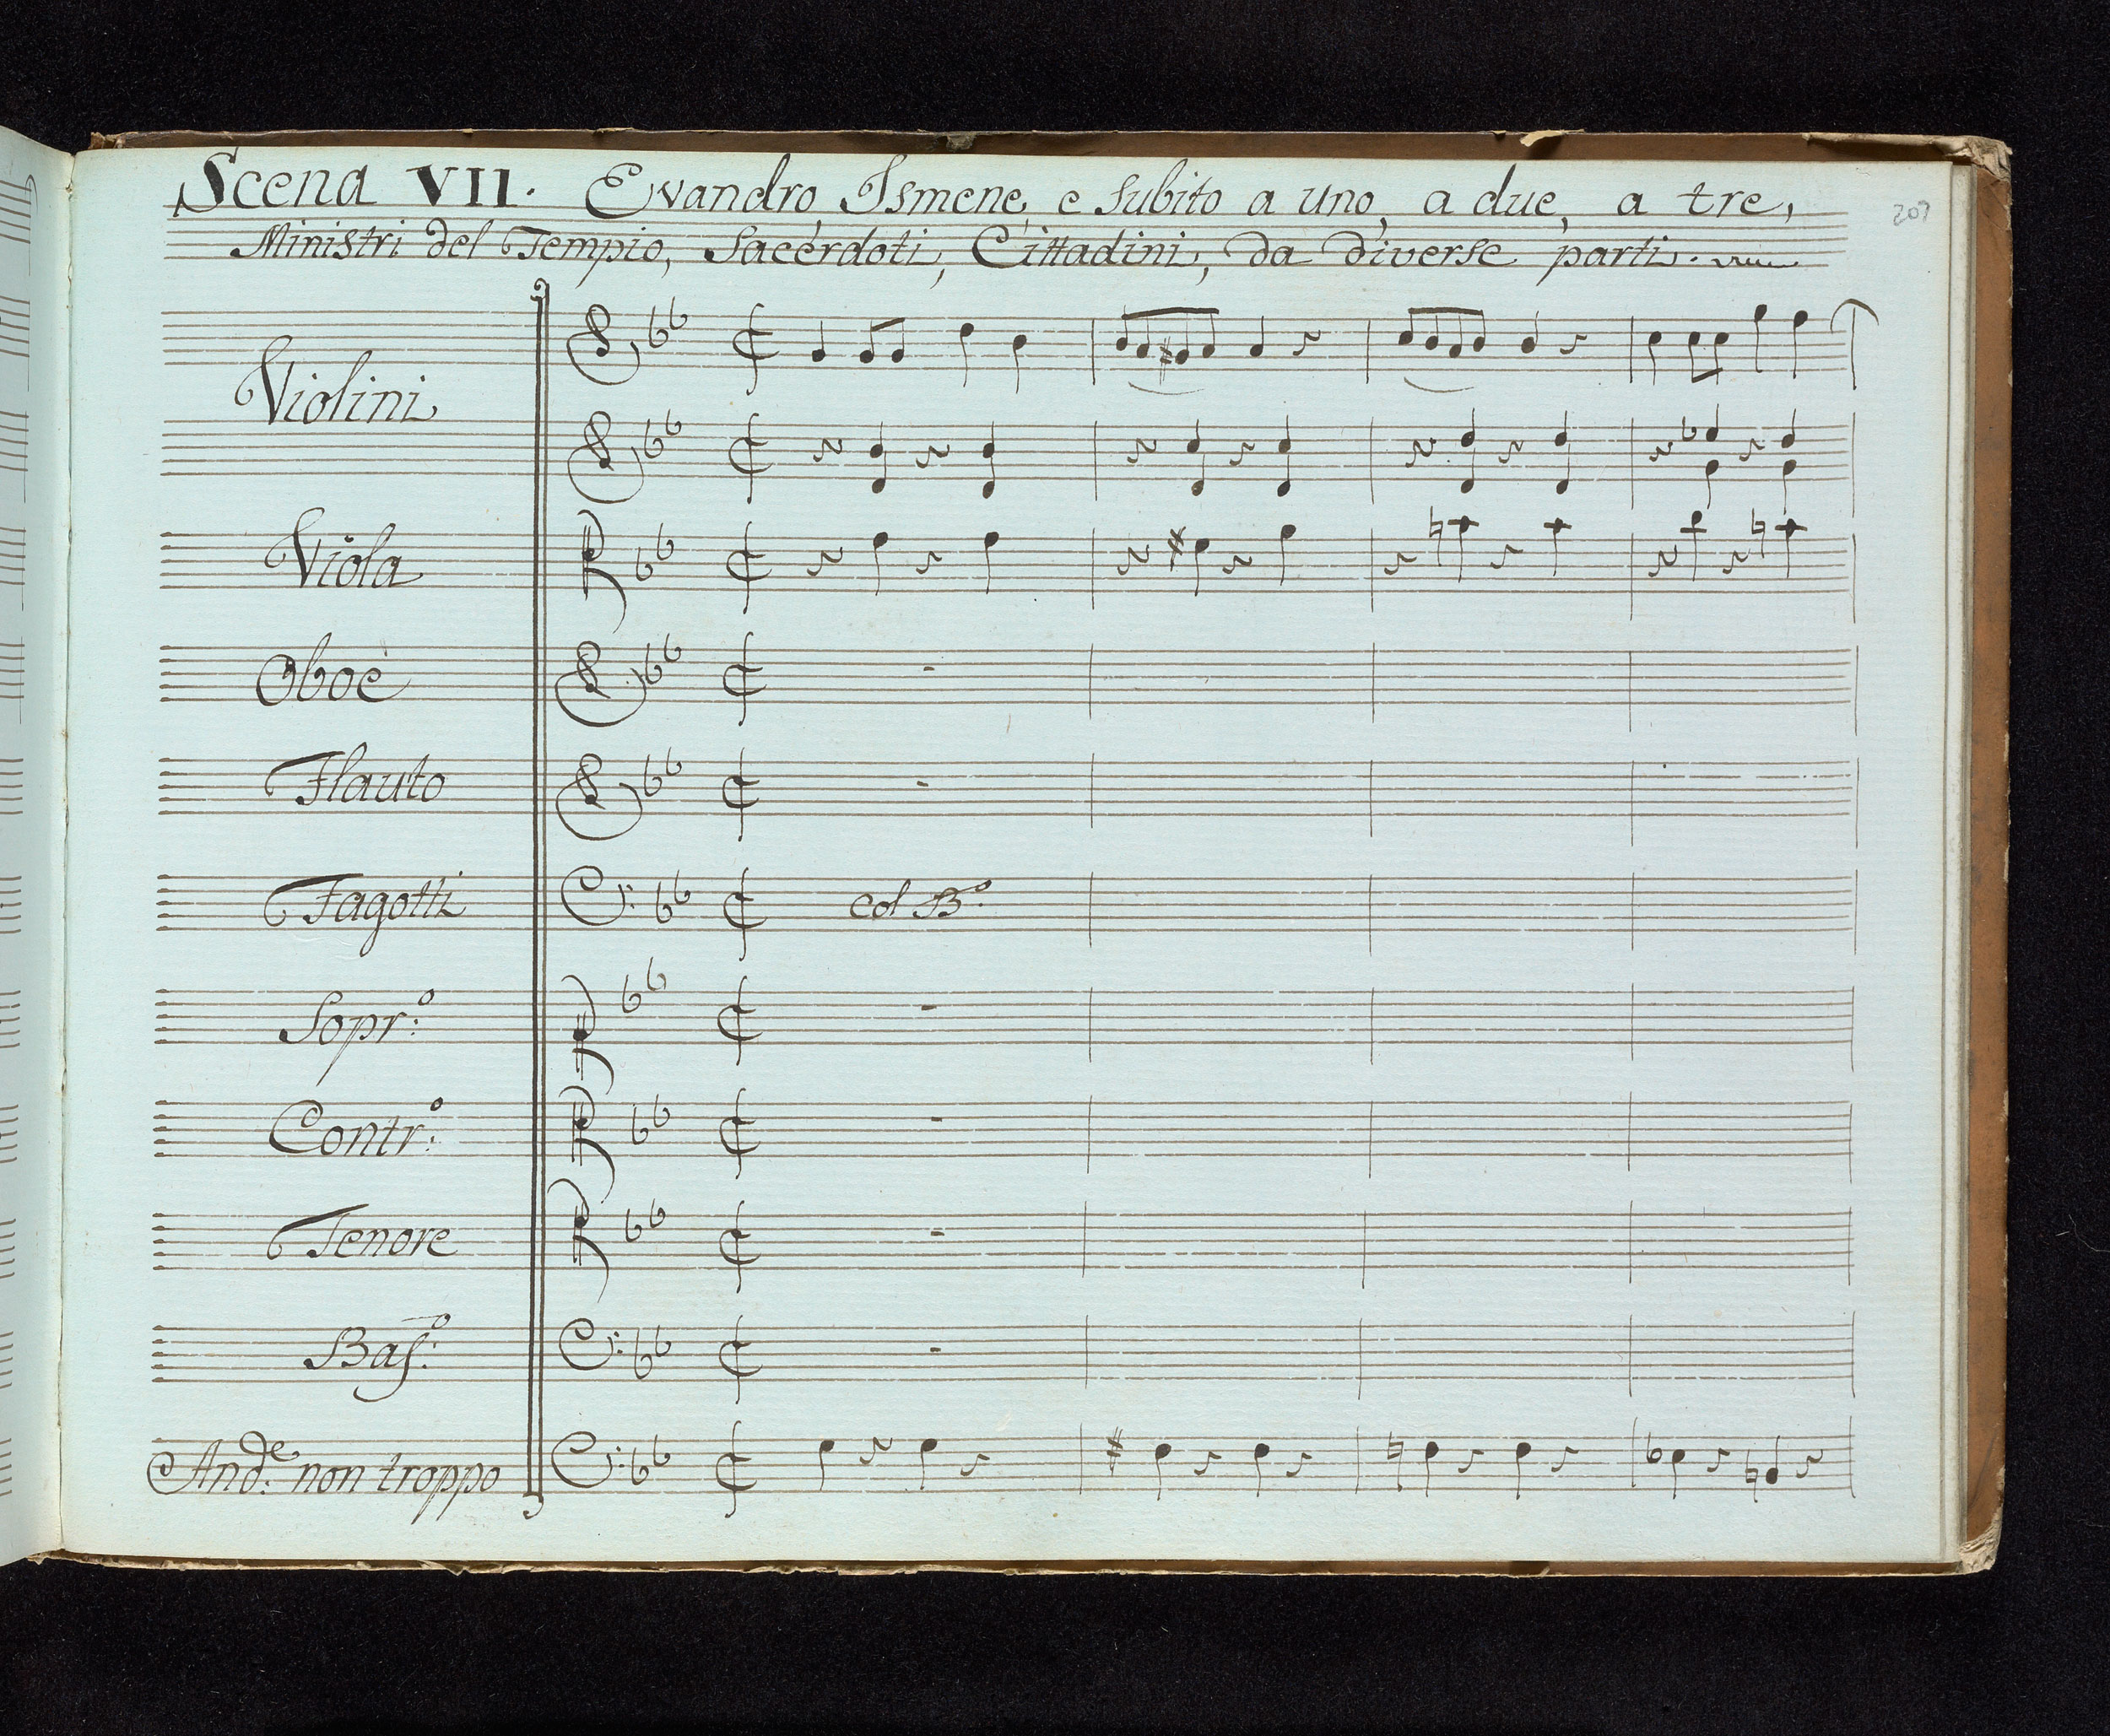 Scena VII. Evandro, Ismene, e subito a uno, a due, a tre,
Ministri del Tempio, Sacerdoti, Cittadini, da diverse parti.
Violini
Viola
Oboè
Flauto
Fagotti
col B.º
Sopr.º
Contr.º
Tenore
Bas.º
And.e non troppo